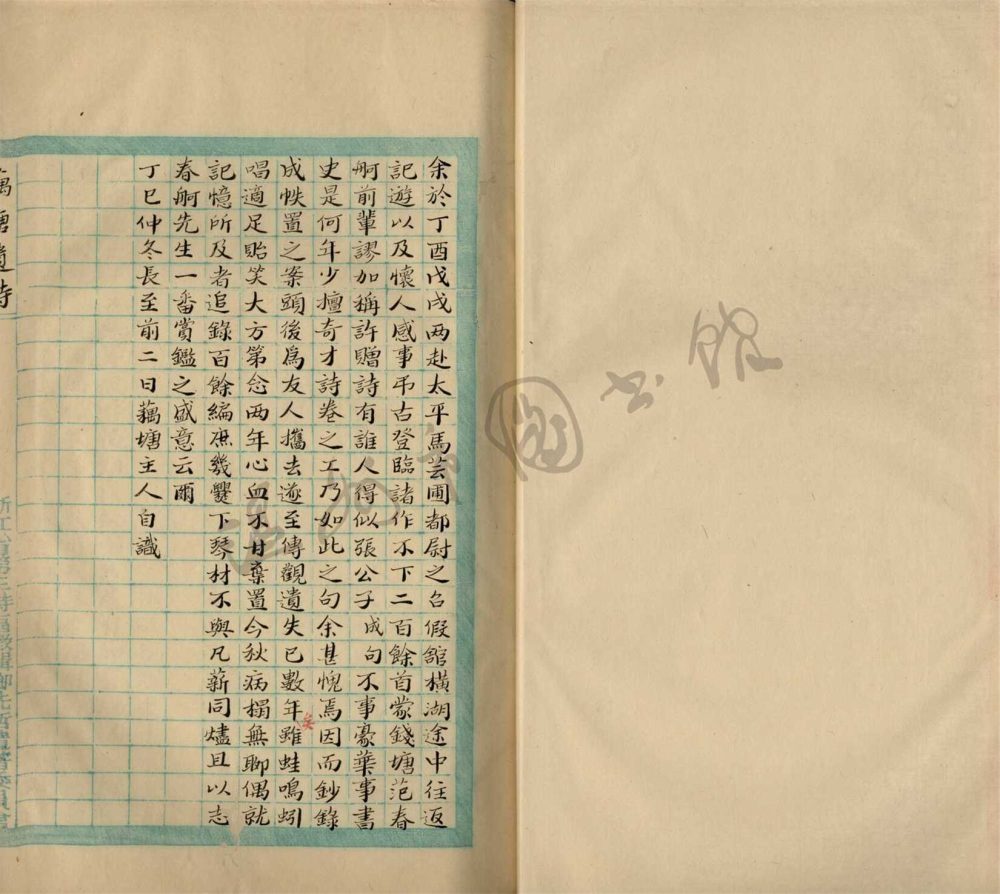 余於丁酉戊戌两赴太平馬芸圃都尉之召假館橫湖途中往返
記遊以及懷人感事弔古登臨諸作不下二百餘首蒙錢塘范春
舸前輩謬加稱許贈詩有誰人得似張公子成句不事豪華事書
史是何年少擅奇才詩卷之工乃如此之句余甚愧焉因而鈔錄
成帙置之案頭後爲友人攜去遂至傳觀遺失已數年矣雖蛙鳴蚓
唱適足貽笑大方第念两年心血不甘棄置今秋病榻無聊偶就
記憶所及者追錄百餘編庶幾爨下琴材不與凡薪同燼且以志
春舸先生一番賞鑑之盛意云爾
丁巳仲冬長至前二日藕塘主人自識
藕塘遺詩